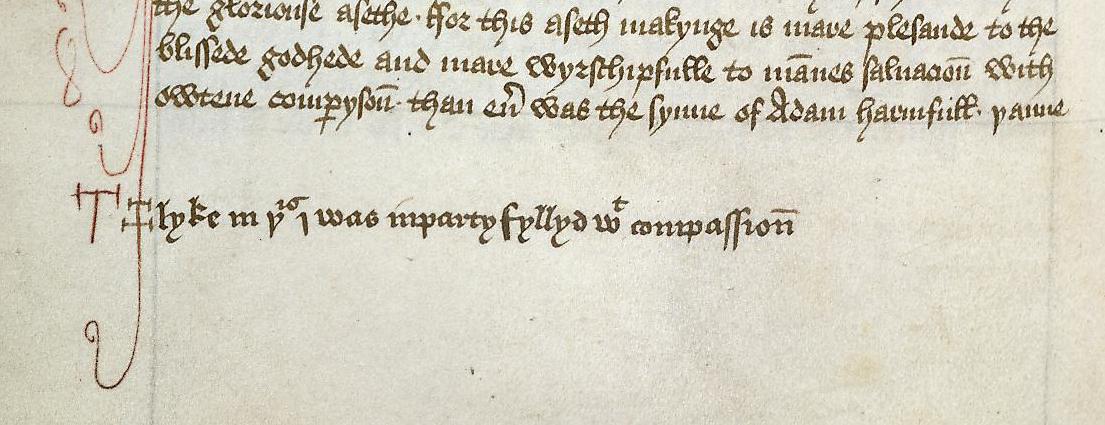 the gloriouse asethe. ffor this aseth makynge is mare plesande to the
blissede godhede and mare wyrschipfulle to mānes saluacioū with
owtene compysoū. than eū was the synne of Adam harmfull. yanne
lyke in yis I was in party fyllyd wt compassioū